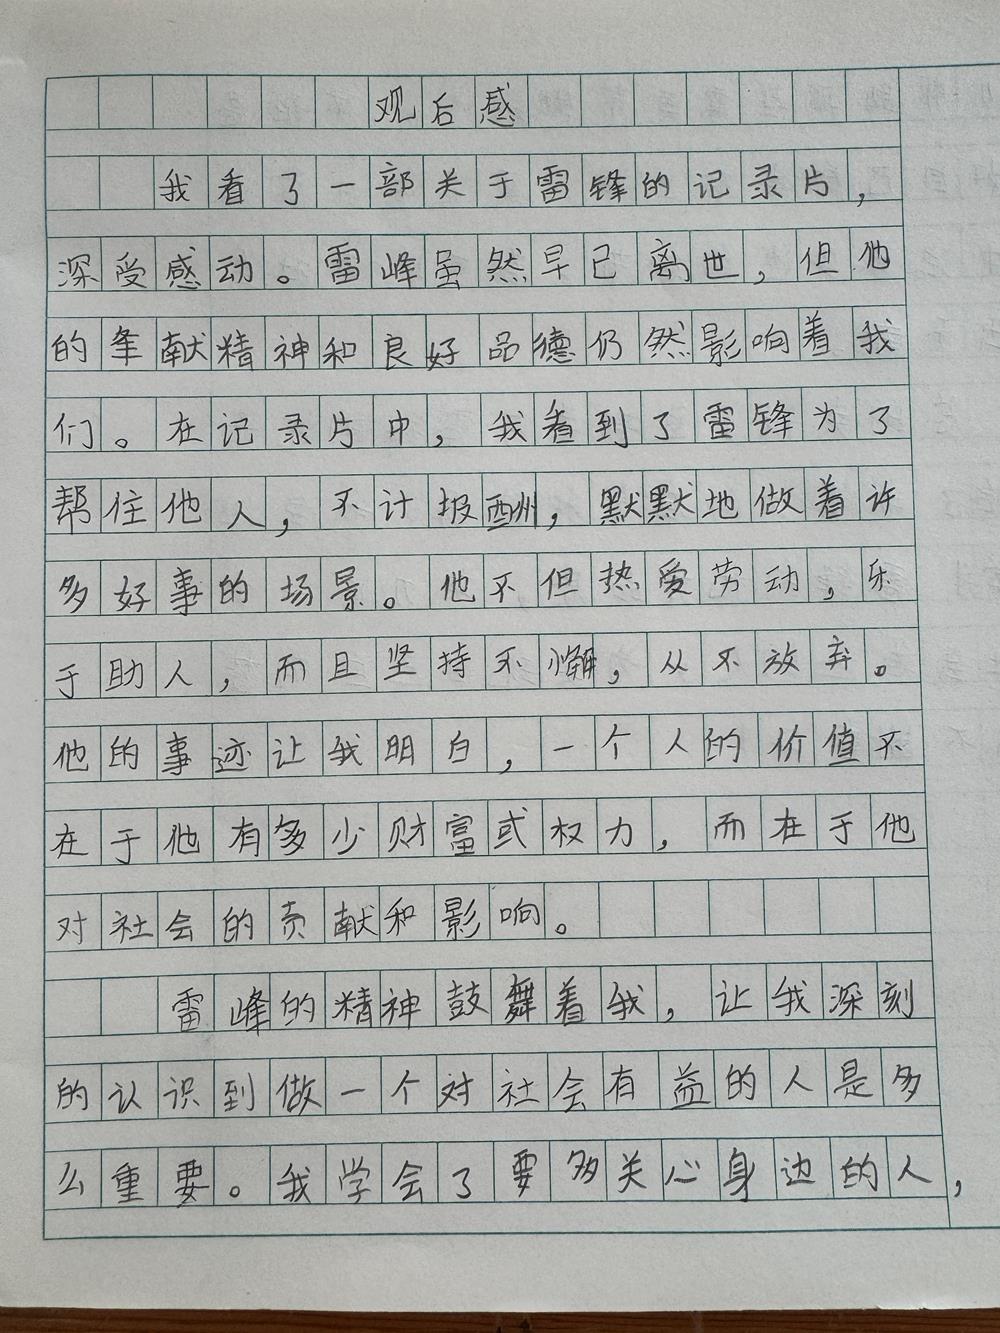 观后感
我看了一部关于雷锋的记录片，
深受感动。雷峰虽然早已离世，但他
的奉献精神和良好品德仍然影响着我
们。在记录片中，我看到了雷锋为了
帮住他人，不计报酬，默默地做着许
多好事的场景。他不但热爱劳动，乐
于助人，而且坚持不懈，从不放弃。
他的事迹让我明白，一个人的价值不
在于他有多少财富或权力，而在于他
对社会的贡献和影响。
雷峰的精神鼓舞着我，让我深刻
的认识到做一个对社会有益的人是多
么重要。我学会了要多关心身边的人，